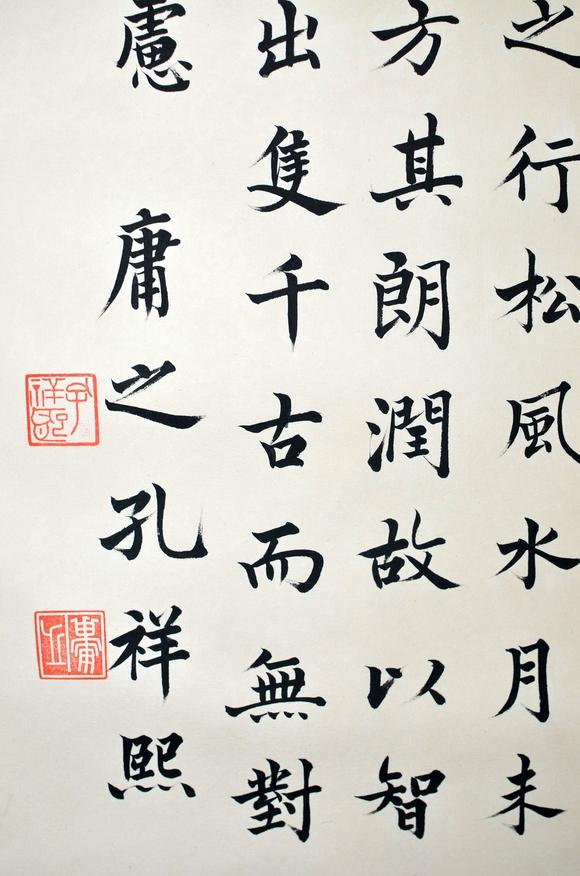 之行松風水月未
方其朗潤故以智
出隻千古而無對
慮
庸之孔祥熙
孔祥熙
庸之